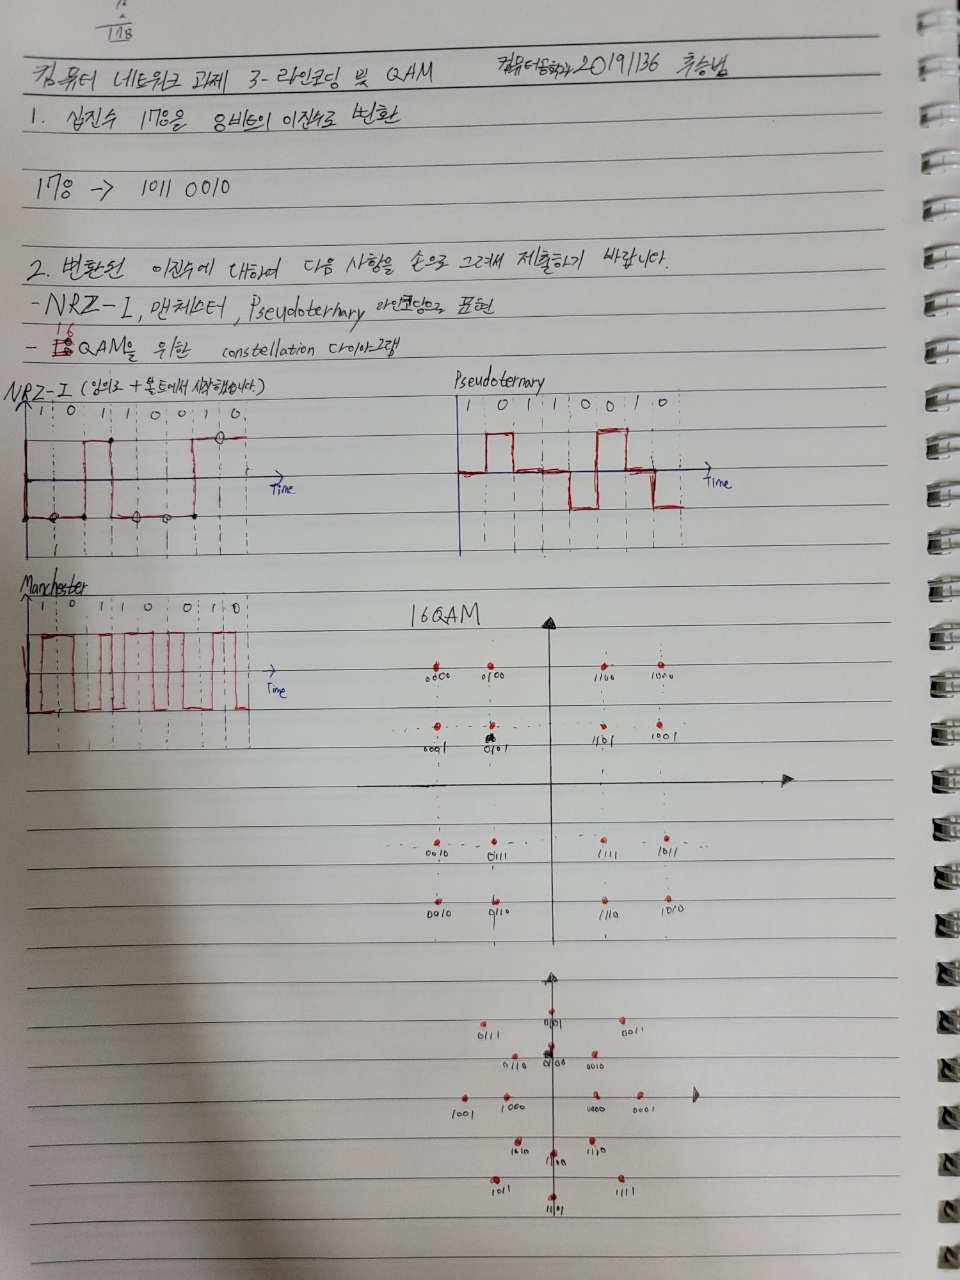 178
컴퓨터 네트워크 과제 3 - 라인코딩 및 QAM 컴퓨터공학과 20191136
1. 십진수 178을 8비트의 이진수로 변환
178 -> 1011 0010
2. 변환된 이진수에 대하여 다음 사항을 손으로 그려서 제출하기 바랍니다.
- NRZ-I, 맨체스터, Pseudoternary 라인코딩으로 표현
- 16 QAM을 위한 constellation 다이아그램
NRZ-I (임의로 + 볼트에서 시작했습니다.)
1 0 1 1 0 0 1 0
Time
Pseudoternary
1 0 1 1 0 0 1 0
Time
Manchester
1 0 1 1 0 0 1 0
Time
16QAM
0000 0100 1100 1000
0001 0101 1101 1001
0010 0111 1111 1011
0010 0110 1110 1010
0111 0101 0011
0110 0100 0010
1001 1000 0000 0001
1010 1100 1110
1011 1101 1111